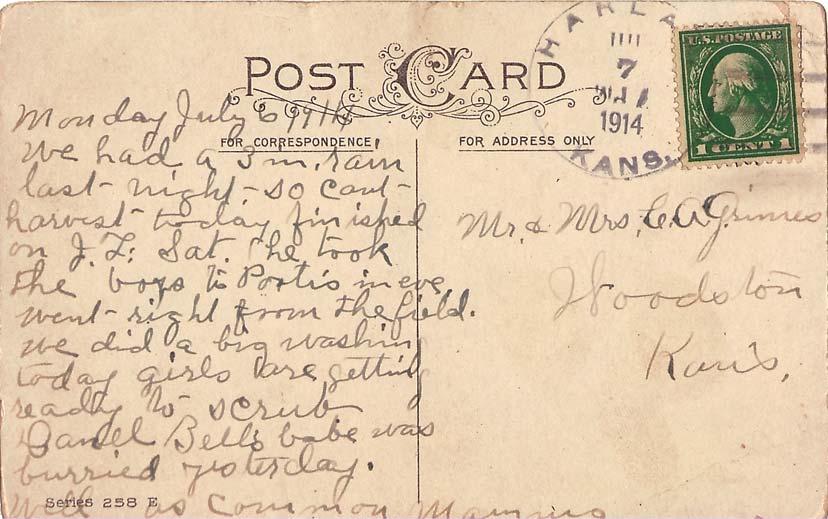 POST CARD
HARLA
7
1914
KANS.
U.S. POSTAGE
1 CENT 1
FOR CORRESPONDENCE
FOR ADDRESS ONLY
Monday July 6 1914
We had a 3 m. rain
last night so cant
harvest today finished
on J. F. Sat. he took
the boys to Portis in eve
went right from the field.
we did a big washing
today girls are getting
ready to scrub
Daniel Bell's babe was
burried yesterday.
Well as common Mamma
Mr. & Mrs. C. A. Grimes
Woodston
Kans,
Series 258 E